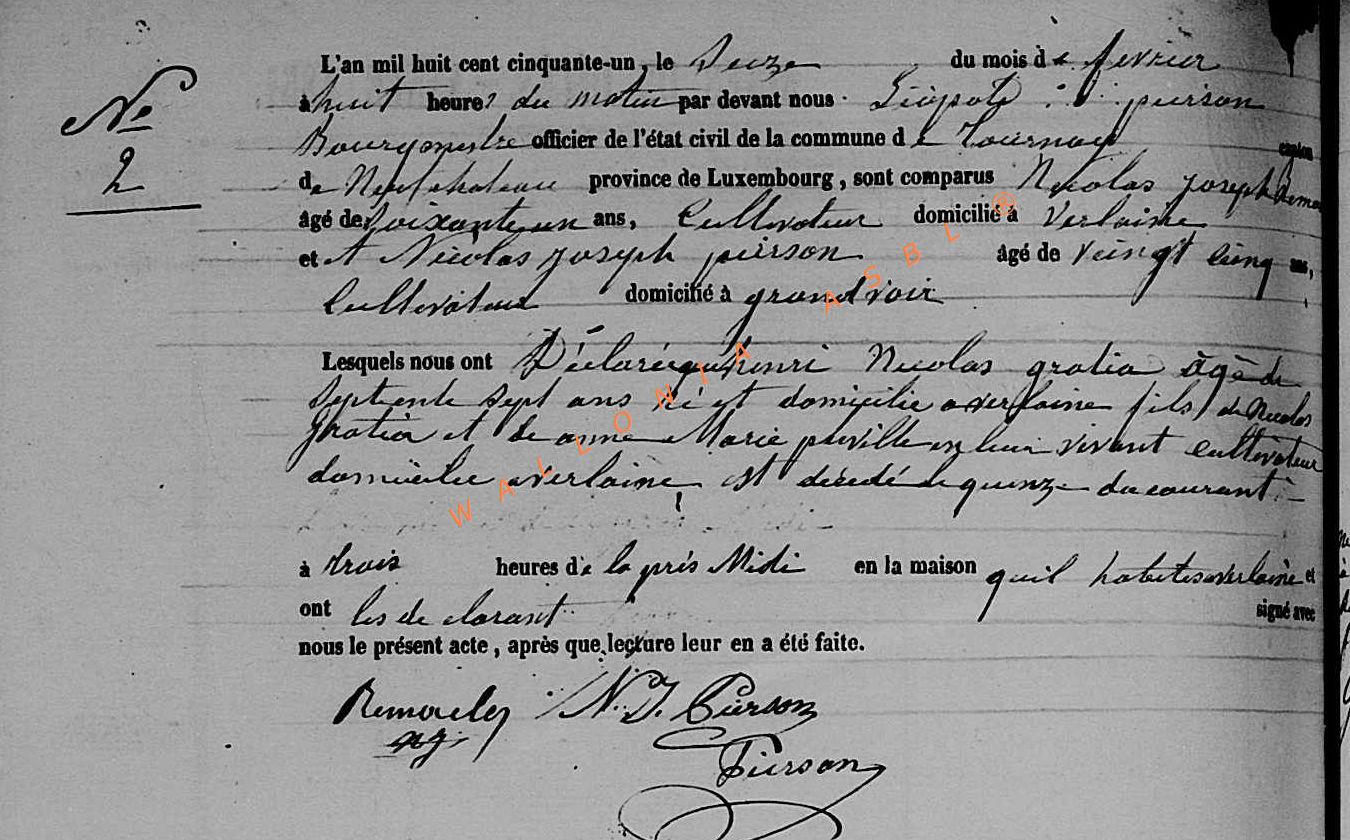 No
2
L'an mil huit cent cinquante-un, le Seize du mois de fevrier
à huit heures du matin par devant nous Léopold pierson
Bourgmestre officier de l'état civil de la commune de Tournay canton
de Neufchateau province de Luxembourg, sont comparus Nicolas Joseph Remo
âgé de Soixante un ans, Cultivateur domicilié à Verlaine
et Nicolas Joseph pierson âgé de veingt cinq ans,
Cultivateur domicilié à grandvoir
Lesquels nous ont Déclaré que henri Nicolas gratia âgé de
Septente Sept ans né et domicilie a verlaine fils de Nicolas
gratia et de anne Marie en leur vivant cultivateur
domicilie a verlaine est décedé le quinze du courant
à trois heures de la près Midi en la maison quil habite a verlaine et
ont les declarant signé avec
nous le présent acte, après que lecture leur en a été faite.
Remacle N. J. Pierson
nj
Pierson
WALLONIA ASBL ®